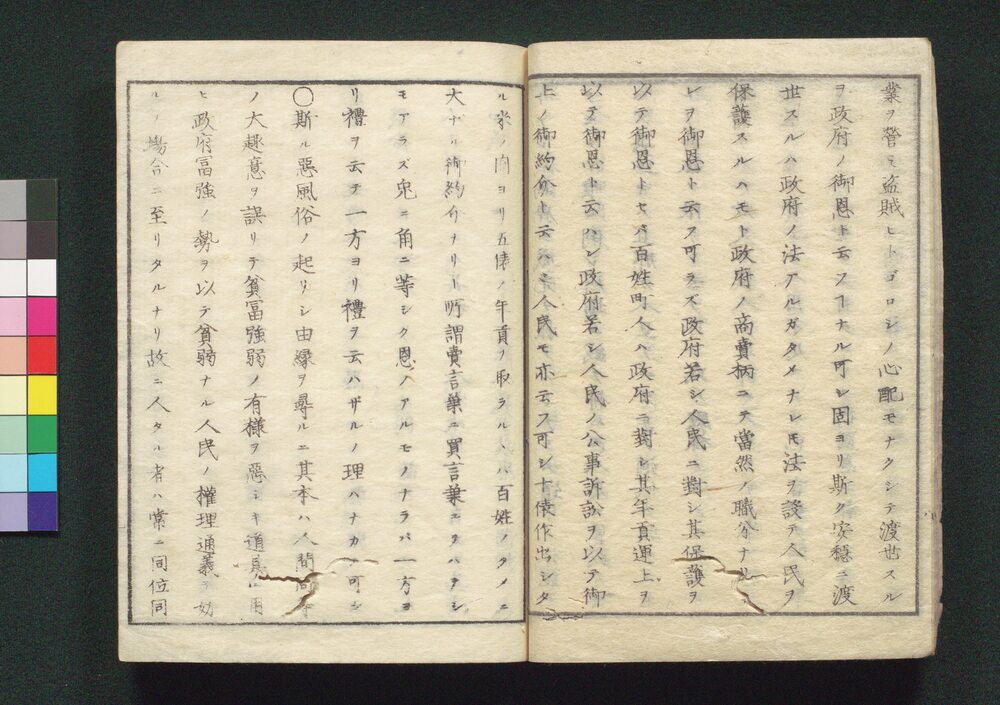 業ヲ營ミ盗賊ヒトゴロシノ心配モナクシテ渡世スル
ヲ政府ノ御恩ト云フヿナル可シ固ヨリ斯ク安穏ニ渡
世スルハ政府ノ法アルガタメナレ𪜈法ヲ設テ人民ヲ
保護スルハモト政府ノ商賣柄ニテ當然ノ職分ナル
レヲ御恩ト云フ可ラズ政府若シ人民ニ對シ其保護ヲ
以テ御恩トセバ百姓町人ハ政府ニ對シ其年貢運上ヲ
以テ御恩ト云ハン政府若シ人民ノ公事訴訟ヲ以テ御
上ノ御約介ト云ハヾ人民モ亦云フ可シ十俵作出シタ
ル米ノ内ヨリ五俵ノ年貢ヲ取ラルヽハ百姓ノタメニ
大ナル御約介ナリト所謂賣言葉ニ買言葉ニテハテシ
モアラズ兎ニ角ニ等シク恩ノアルモノナラバ一方ヨ
リ禮ヲ云テ一方ヨリ禮ヲ云ハザルノ理ハナカル可シ
〇斯ル惡風俗ノ起リシ由縁ヲ尋ルニ其本ハ人間同等
ノ大趣意ヲ誤リテ貧冨強弱ノ有様ヲ惡シキ道具ニ用
ヒ政府冨強ノ勢ヲ以テ貧弱ナル人民ノ權理通義ヲ妨
ルノ塲合ニ至リタルナリ故ニ人タル者ハ常ニ同位同